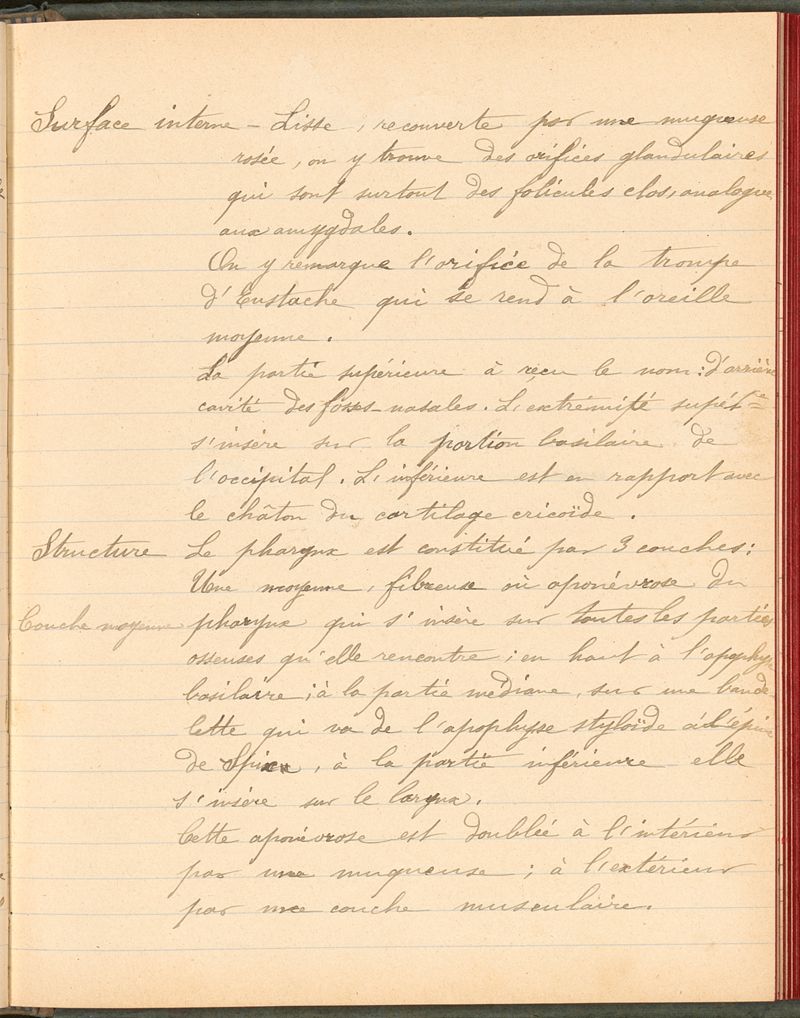 Surface interne - Lisse, recouverte par une muqueuse
rosée, on y trouve des orifices glandulaires
qui sont surtout des folicules clos, analogue
aux amygdales.
On y remarque l'orifice de la trompe
d'Eustache qui se rend à l'oreille
moyenne.
La partie supérieure à reçu le nom: d'arrière
cavité des fosses-nasales. L'extrémité supére
s'insère sur la portion basilaire de
l'occipital. L'inférieure est en rapport avec
le châton du cartilage cricoïde.
Structure Le pharynx est constitué par 3 couches:
Une moyenne, fibreuse où aponévrose du
Couche moyenne pharynx qui s'insère sur toutes les parties
osseuses qu'elle rencontre; en haut à l'apophyse
basilaire; à la partie médiane, sur une bande
lette qui va de l'apophyse styloïde à l'épine
de Spix, à la partie inférieure elle
s'insère sur le larynx.
Cette aponévrose est doublée à l'intérieur
par une muqueuse; à l'extérieur
par une couche musculaire.